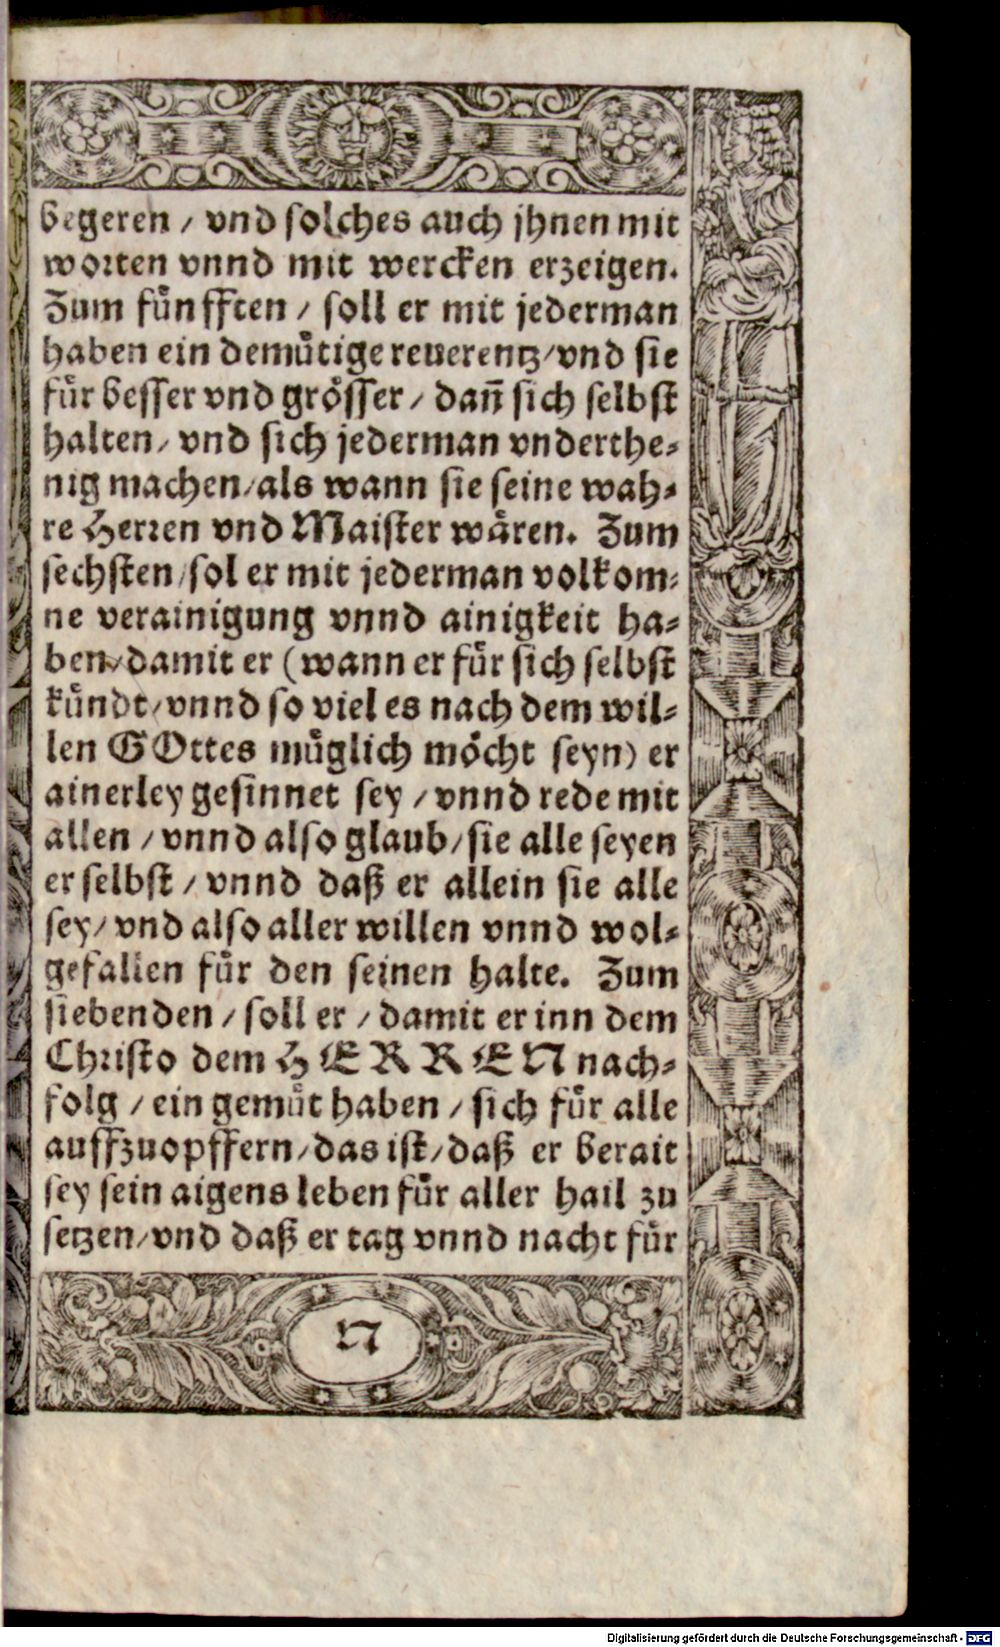 begeren / vnd solches auch jhnen mit
worten vnnd mit wercken erzeigen.
Zum fuͤnfften / soll er mit jederman
haben ein demuͤtige reuerentz/vnd sie
fuͤr besser vnd groͤsser / dan̄ sich selbst
halten/ vnd sich jederman vnderthe⸗
nig machen/als wann sie seine wah⸗
re Herren vnd Maister waͤren. Zum
sechsten/sol er mit jederman volkom⸗
ne verainigung vnnd ainigkeit ha⸗
ben/damit er (wann er fuͤr sich selbst
kuͤndt/vnnd so viel es nach dem wil⸗
len GOttes muͤglich moͤcht seyn) er
ainerley gesinnet sey / vnnd rede mit
allen / vnnd also glaub/sie alle seyen
er selbst / vnnd daß er allein sie alle
sey/ vnd also aller willen vnnd wol⸗
gefallen fuͤr den seinen halte. Zum
siebenden / soll er / damit er inn dem
Christo dem HERREN nach⸗
folg / ein gemuͤt haben / sich fuͤr alle
auffzuopffern/das ist/daß er berait
sey sein aigens leben fuͤr aller hail zu
setzen/vnd daß er tag vnnd nacht fuͤr
N
Digitalisierung gefördert durch die Deutsche Forschungsgemeinschaft - DFG